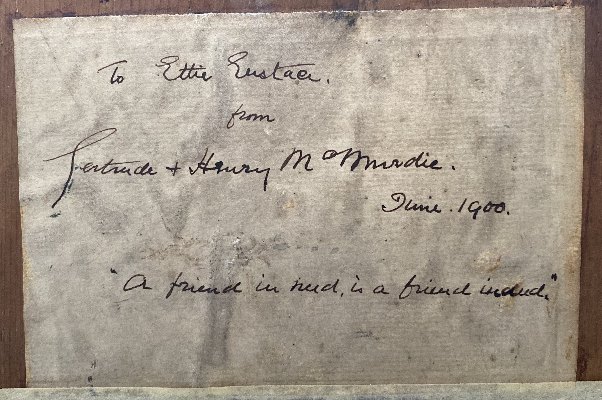 To Ettie Eustace.
from
Gertrude + Henry McMurdie.
June. 1900.
"A friend in need, is a friend indeed."